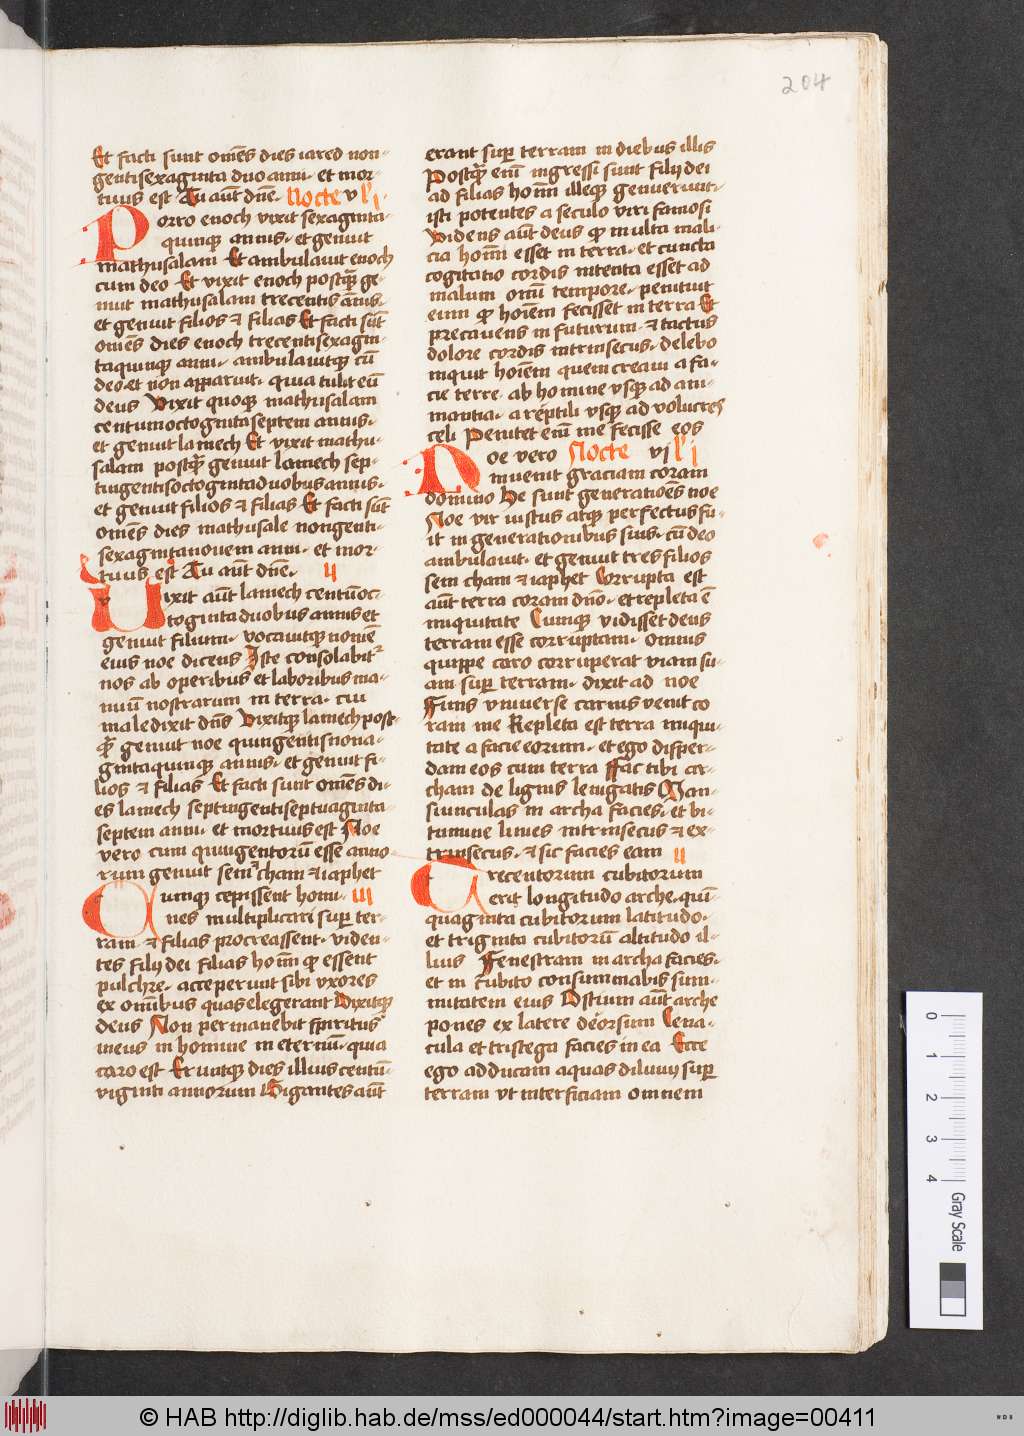 204
Et facti sunt om̄es dies iared non-
gentisexaginta duo anni · et mor-
tuus est Tu aūt dn̄e · Nocte v l' i
Porro enoch vixit sexaginta-
quinqꝫ annis · et genuit
mathusalam Et ambulauit enoch
cum deo Et vixit enoch postqꝫ ge-
nuit mathusalam trecentis ānis ·
et genuit filios ⁊ filias Et facti sūt
om̄es dies enoch trecentisexagin-
taquinqꝫ anni · ambulauitqꝫ cū
deo et non apparuit · quia tulit eū
deus Vixit quoqꝫ mathusalam
centumoctogintaseptem annis ·
et genuit lamech Et vixit mathu-
salam postqꝫ genuit lamech sep-
tingentisoctogintaduobus annis ·
et genuit filios ⁊ filias Et facti sūt
om̄es dies mathusale nongenti-
sexagintanouem anni · et mor-
tuus est Tu aūt dn̄e · ij
Uixit aūt lamech centūoc-
togintaduobus annis et
genuit filium · vocauitqꝫ nomē
eius noe dicens Iste consolabit᷑
nos ab operibus et laboribus ma-
nuū nostrarum in terra · cui
maledixit dn̄s Vixitqꝫ lamech post-
qꝫ genuit noe quingentisnona-
gintaquinqꝫ annis · et genuit fi-
lios ⁊ filias Et facti sunt om̄es di-
es lamech septingentiseptuaginta-
septem anni · et mortuus est Noe
vero cum quingentorū esse anno-
rum genuit sem cham ⁊ iaphet
Cumqꝫ cepissent homi- iii
nes multiplicari sup̱ ter-
ram · ⁊ filias procreassent · viden-
tes filij dei filias hoīm qꝫ essent
pulchre · acceperunt sibi vxores
ex om̄ibus quas elegerant Dixitqꝫ
deus Non permanebit spiritus
meus in homine in eternū · quia
caro est Eruntqꝫ dies illius centū-
viginti annorum Gigantes aūt
erant sup̱ terram in diebus illis
Postqꝫ enī ingressi sunt filij dei
ad filias hoīm illeqꝫ genuerunt ·
isti potentes a seculo viri famosi
Videns aūt deus qꝫ multa mali-
cia hoīm esset in terra · et cuncta
cogitatio cordis intenta esset ad
malum om̄i tempore · penituit
eum qꝫ hoīem fecisset in terra Et
precauens in futurum · ⁊ tactus
dolore cordis intrinsecus · delebo
inquit hoīem quem creaui a fa-
cie terre · ab homine vsqꝫ ad ani-
mantia · a reptili vsqꝫ ad volucres
celi Penitet enī me fecisse eos
Noe vero Nocte vj l' i
inuenit graciam coram
domino He sunt generatiōes noe
Noe vir iustus atqꝫ perfectus fu-
it in generationibus suis · cū deo
ambulauit · et genuit tres filios
sem cham ⁊ iaphet Corrupta est
aūt terra coram dn̄o · et repleta ē
iniquitate Cumqꝫ vidisset deus
terram esse corruptam · omnis
quippe caro corruperat viam su-
am sup̱ terram · dixit ad noe
Finis vniuerse carnis venit co
ram me Repleta est terra iniqui-
tate a facie eorum · et ego disper-
dam eos cum terra Fac tibi ar-
cham de lignis leuigatis Man-
siunculas in archa facies · et bi-
tumine linies intrinsecus ⁊ ex-
trinsecus · ⁊ sic facies eam ij
Trecentorum cubitorum
erit longitudo arche · quī-
quaginta cubitorum latitudo ·
et triginta cubitorū altitudo il-
lius Fenestram in archa facies ·
et in cubito consummabis sum-
mitatem eius Ostium aūt arche
pones ex latere deorsum Cena-
cula et tristega facies in ea Ecce
ego adducam aquas diluuij sup̱
terram vt interficiam omnem
0 1 2 3 4 Gray Scale
© HAB http://diglib.hab.de/mss/ed000044/start.htm?image=00411